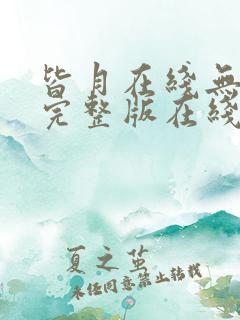 皆月在线无
完整版在线
夏之茧
未经同意禁止转载